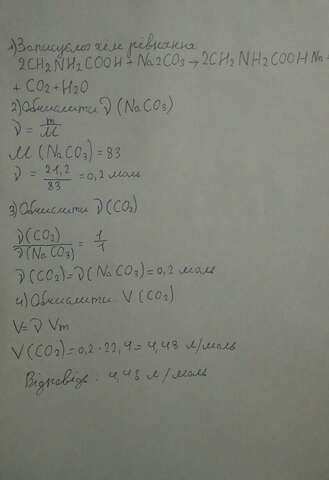 1) Записуємо хім рівняння
2CH2NH2COOH + Na2CO3 → 2CH2NH2COOHNa+
+ CO2 + H2O
2) Обчислити ν (NaCO3)
ν = m/M
M (NaCO3) = 83
ν = 21,2/83 = 0,2 моль
3) Обчислити ν(CO2)
ν(CO2)/ν(NaCO3) = 1/1
ν(CO2) = ν(NaCO3) = 0,2 моль
4) Обчислити V (CO2)
V = ν Vm
V(CO2) = 0,2 · 22,4 = 4,48 л/моль
Відповідь: 4,48 л/моль